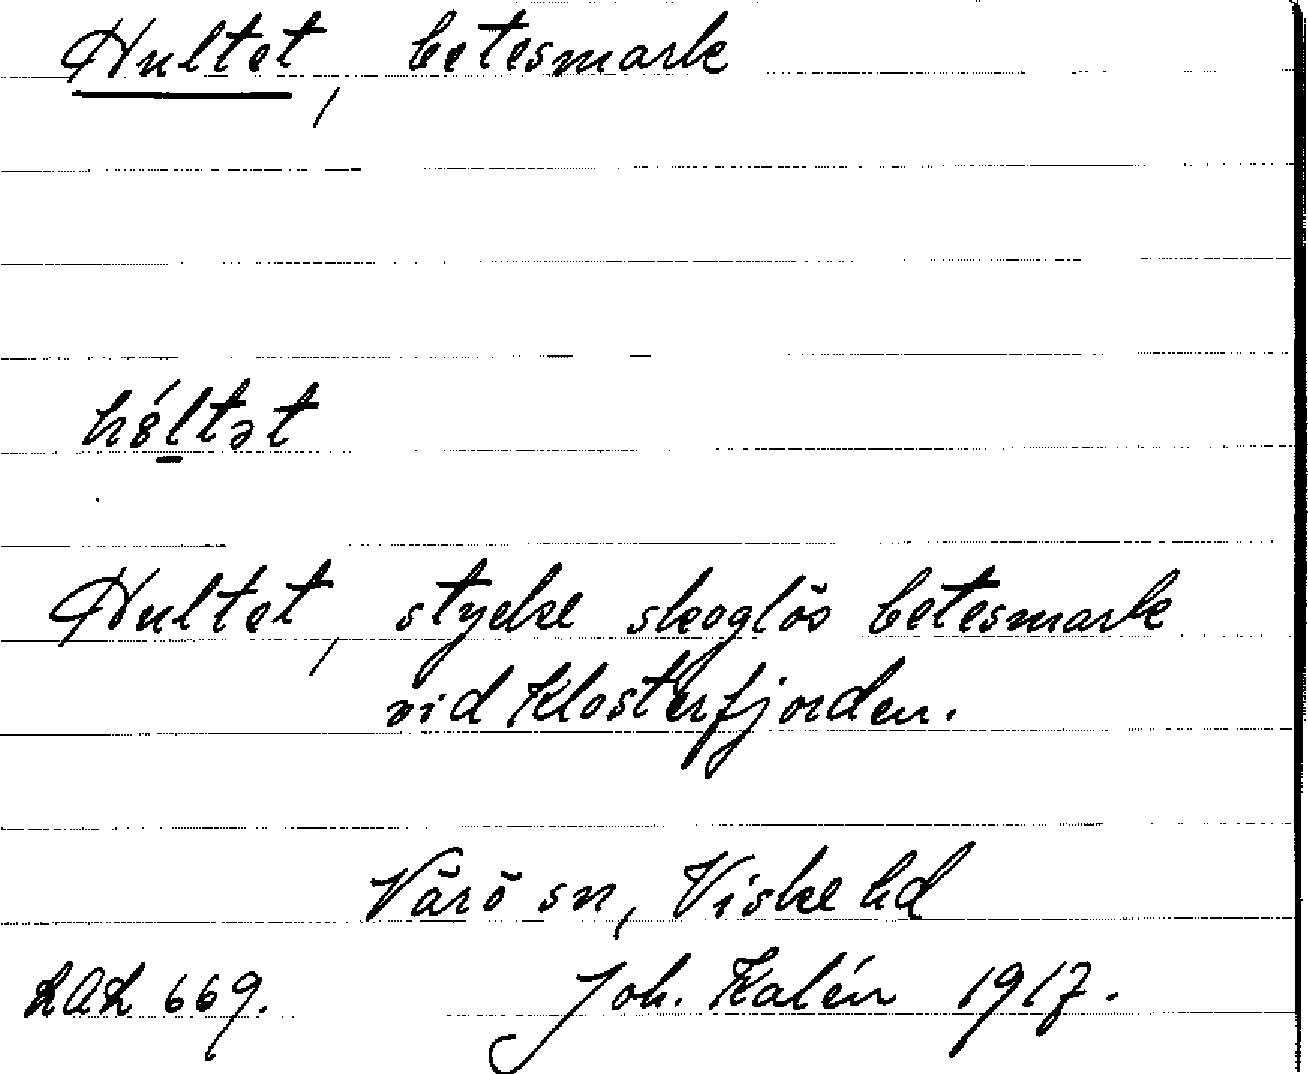 Hultet, betesmark
hóltət
Hultet, stycke skoglös betesmark
vid Klosterfjorden.
Värö sn, Viske hd
LAL 669. Joh. Kalén 1917.